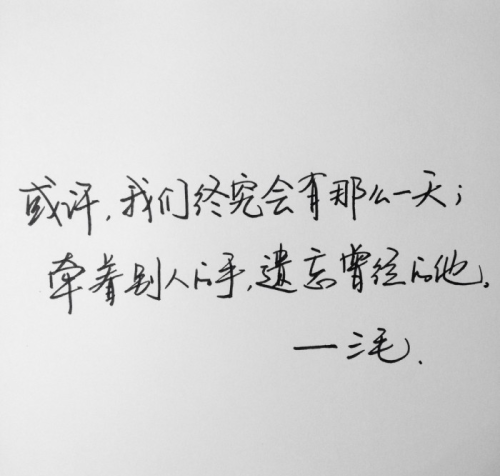 或许,我们终究会有那么一天;
牵着别人的手,遗忘曾经的他.
—三毛.